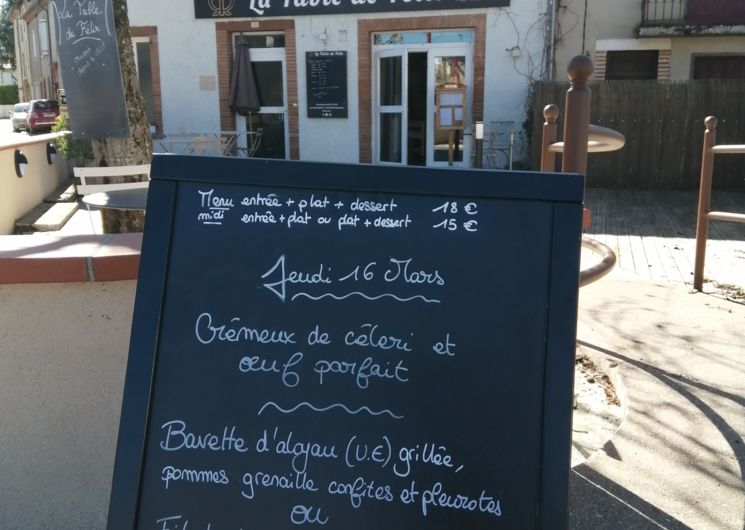 La Table de
La Table
de Félix
La Table de Félix
Menu entrée + plat + dessert 18 €
midi entrée + plat ou plat + dessert 15 €
Jeudi 16 Mars
Crémeux de céleri et
œuf parfait
Bavette d'aloyau (U.E) grillée,
pommes grenaille confites et pleurotes
ou